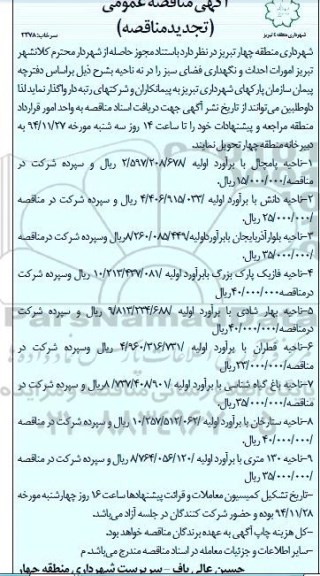 آگهی مناقصه عمومی
(تجدیدمناقصه)
شهرداری منطقه ۴ تبریز
سرخاب: ۲۲۷۸
شهرداری منطقه چهار تبریز در نظر دارد باستناد مجوز حاصله از شهردار محترم کلانشهر
تبریز امورات احداث و نگهداری فضای سبز را در نه ناحیه بشرح ذیل براساس دفترچه
پیمان سازمان پارکهای شهرداری تبریز به پیمانکاران و شرکتهای رتبه دار واگذار نماید لذا
داوطلبین می‌توانند از تاریخ نشر آگهی جهت دریافت اسناد مناقصه به واحد امور قرارداد
منطقه مراجعه و پیشنهادات خود را تا ساعت ۱۴ روز سه شنبه مورخه ۹۴/۱۱/۲۷ به
دبیرخانه منطقه چهار تحویل نمایند.
۱-ناحیه پامچال با برآورد اولیه ۲/۵۹۷/۲۰۸/۶۷۸ ریال و سپرده شرکت در
مناقصه/۱۵/۰۰۰/۰۰۰ ریال.
۲-ناحیه دانش با برآورد اولیه ۴/۴۰۶/۹۱۵/۰۳۳ ریال و سپرده شرکت در مناقصه
/۲۵/۰۰۰/۰۰۰ ریال.
۳-ناحیه بلوار آذربایجان بابرآورداولیه/۸/۲۶۰/۰۸۵/۴۴۹ریال وسپرده شرکت درمناقصه
/۳۵/۰۰۰/۰۰۰ریال.
۴-ناحیه فازیک پارک بزرگ بابرآورد اولیه /۱۰/۲۱۳/۴۳۷/۰۸۱ ریال وسپرده شرکت
درمناقصه/۴۰/۰۰۰/۰۰۰ریال
۵-ناحیه بهار شادی با برآورد اولیه /۹/۸۱۳/۲۳۴/۶۸۸ ریال و سپرده شرکت
درمناقصه/۴۰/۰۰۰/۰۰۰ریال
۶-ناحیه قطران با برآورد اولیه /۴/۹۶۰/۳۱۶/۷۳۱ ریال و سپرده شرکت در مناقصه
/۲۳/۰۰۰/۰۰۰ریال.
۷-ناحیه باغ گیاه شناسی با برآورد اولیه /۸/۷۳۷/۴۰۸/۹۰۱ریال و سپرده شرکت در
مناقصه/۳۵/۰۰۰/۰۰۰ریال.
۸-ناحیه ستارخان با برآورد اولیه /۱۰/۲۵۷/۵۱۲/۰۶۲ ریال و سپرده شرکت در مناقصه
/۴۰/۰۰۰/۰۰۰ ریال.
۹-ناحیه ۱۳۰ متری با برآورد اولیه /۸/۷۶۴/۰۵۶/۱۲۰ ریال و سپرده شرکت در مناقصه
/۳۵/۰۰۰/۰۰۰ ریال
-تاریخ تشکیل کمیسیون معاملات و قرائت پیشنهادها ساعت ۱۶ روز چهارشنبه مورخه
۹۴/۱۱/۲۸ بوده و حضور شرکت کنندگان در جلسه آزاد می‌باشد.
-کل هزینه چاپ آگهی به عهده برندگان مناقصه خواهد بود.
-سایر اطلاعات و جزئیات معامله در اسناد مناقصه مندرج می‌باشد. م
حسین عالی باف - سرپرست شهرداری منطقه چهار